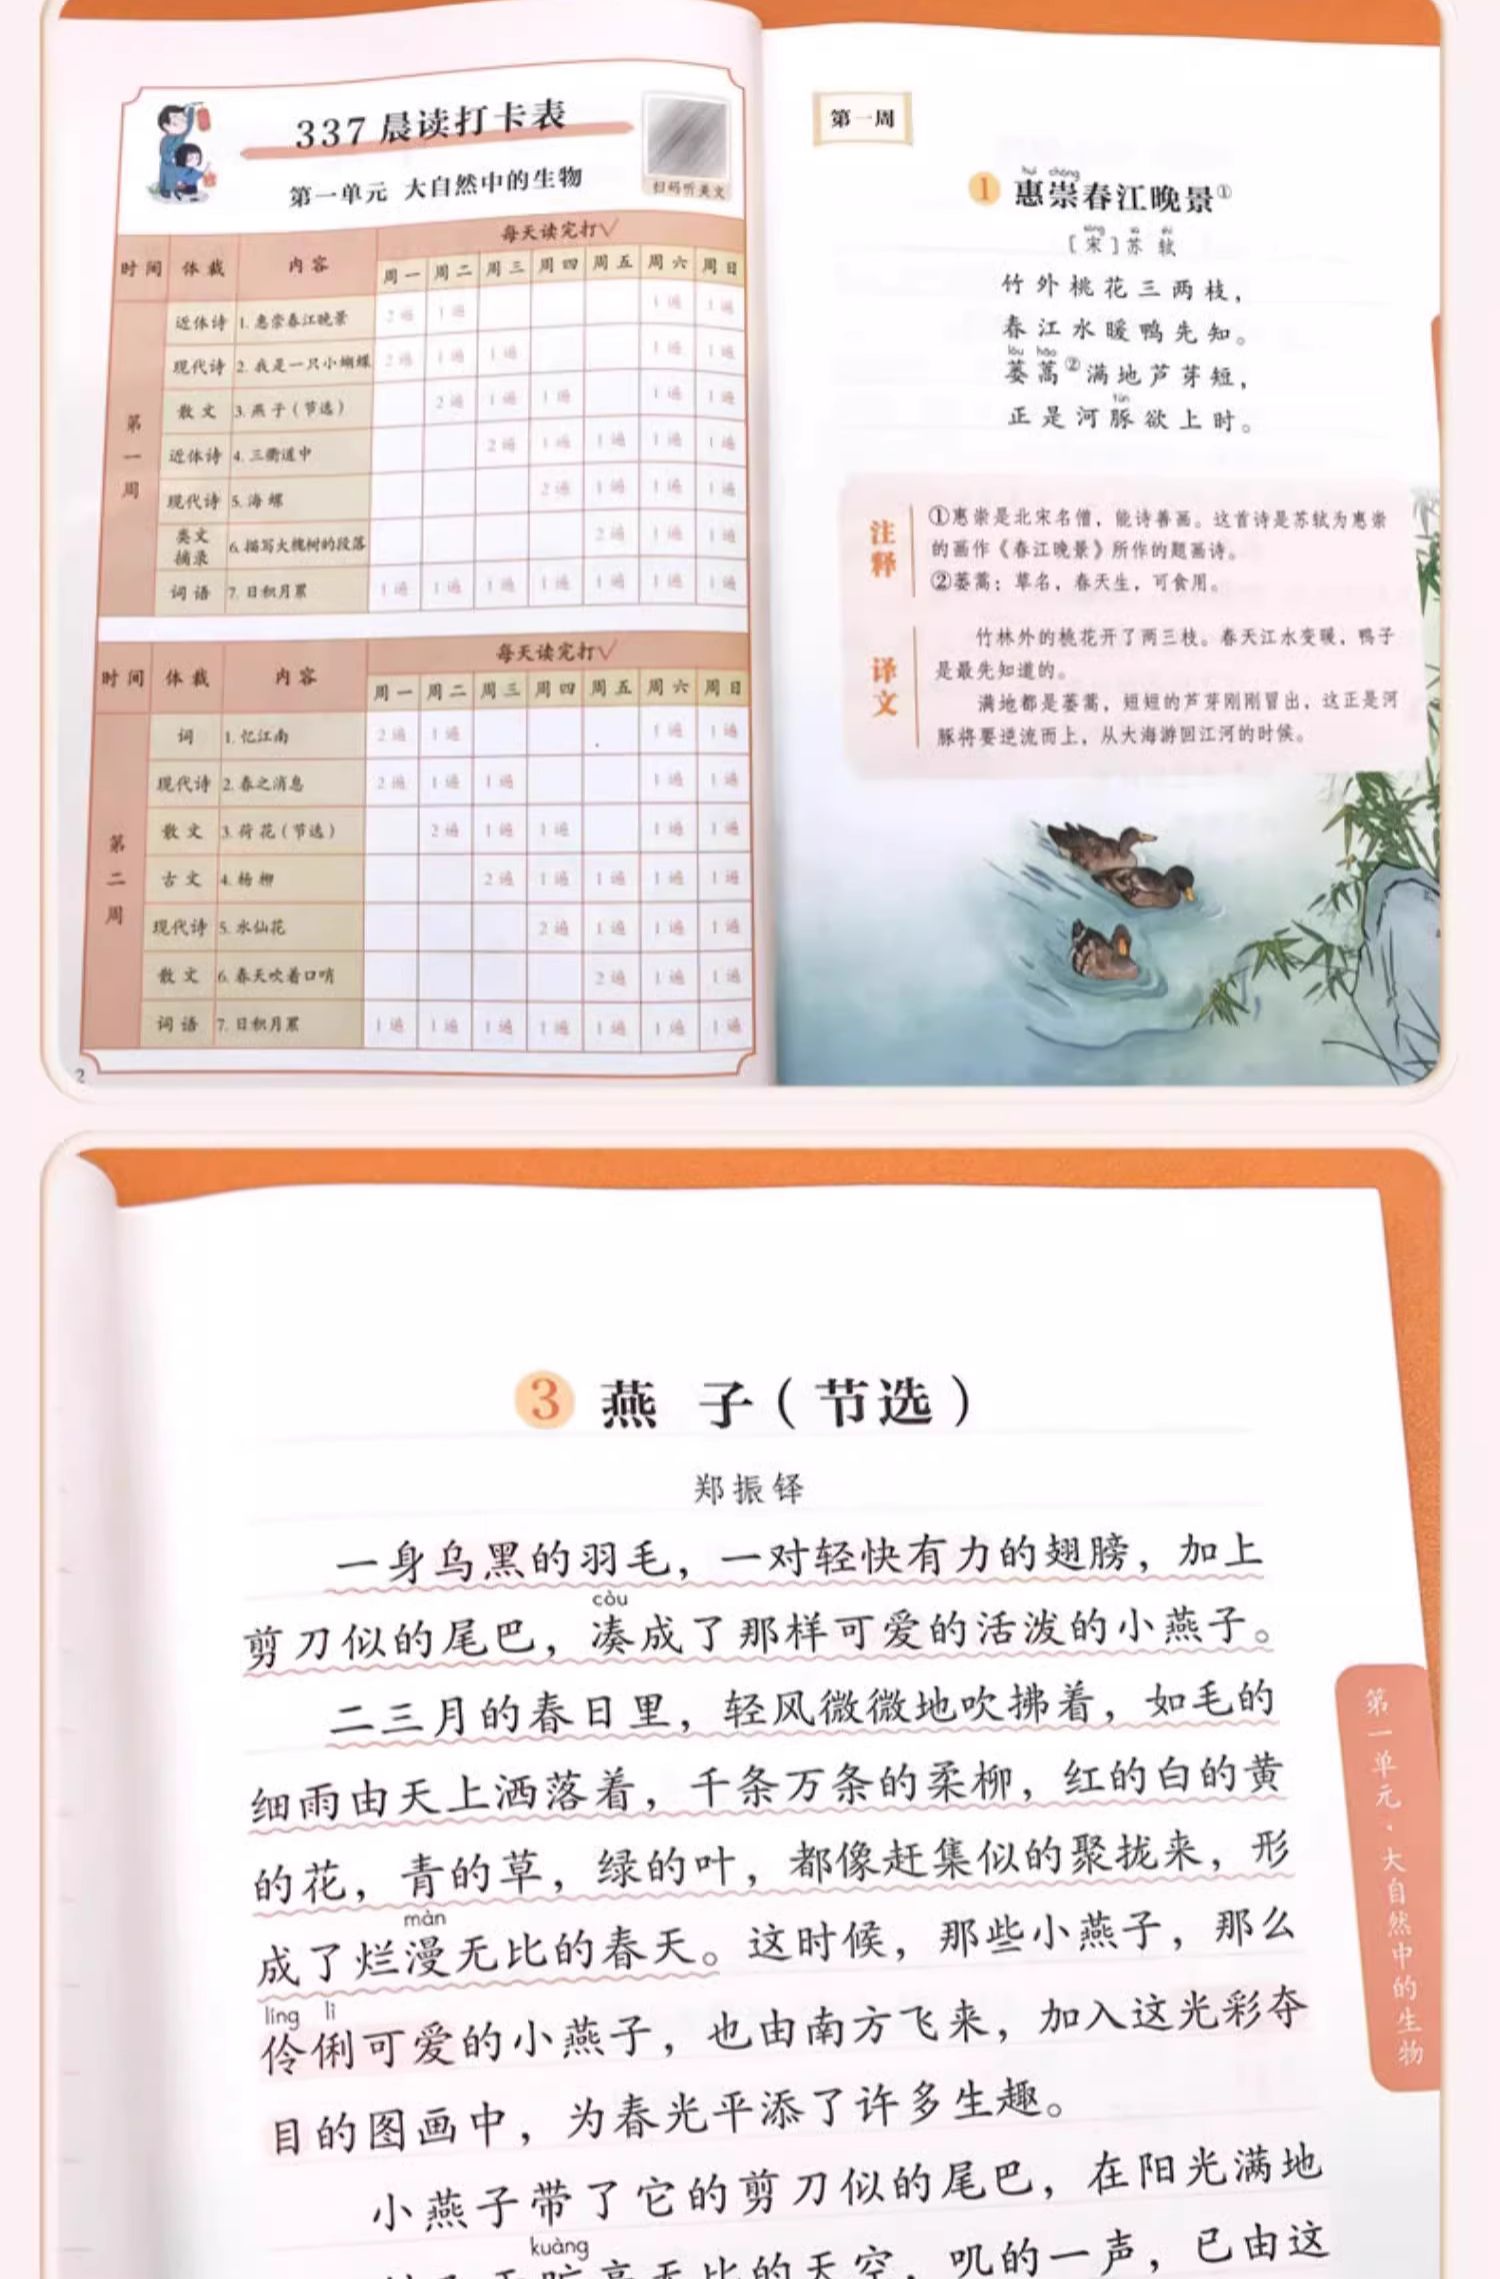 337 晨读打卡表
第一单元 大自然中的生物
扫码听美文
时间 体裁 内容 每天读完打√
周一 周二 周三 周四 周五 周六 周日
第一周
近体诗 1. 惠崇春江晚景 2遍 1遍 1遍 1遍
现代诗 2. 我是一只小蝴蝶 2遍 1遍 1遍 1遍 1遍
散文 3. 燕子（节选） 2遍 1遍 1遍 1遍 1遍
近体诗 4. 三衢道中 2遍 1遍 1遍 1遍 1遍
现代诗 5. 海螺 2遍 1遍 1遍 1遍
类文摘录 6. 描写大槐树的段落 2遍 1遍 1遍
词语 7. 日积月累 1遍 1遍 1遍 1遍 1遍 1遍 1遍
时间 体裁 内容 每天读完打√
周一 周二 周三 周四 周五 周六 周日
第二周
词 1. 忆江南 2遍 1遍 1遍 1遍
现代诗 2. 春之消息 2遍 1遍 1遍 1遍 1遍
散文 3. 荷花（节选） 2遍 1遍 1遍 1遍 1遍
古文 4. 杨柳 2遍 1遍 1遍 1遍 1遍
现代诗 5. 水仙花 2遍 1遍 1遍 1遍
散文 6. 春天吹着口哨 2遍 1遍 1遍
词语 7. 日积月累 1遍 1遍 1遍 1遍 1遍 1遍 1遍
2
第一周
huì chóng
1 惠崇春江晚景①
sòng sū shì
［宋］苏轼
竹外桃花三两枝，
春江水暖鸭先知。
lóu hāo
蒌蒿②满地芦芽短，
tún
正是河豚欲上时。
注释
①惠崇是北宋名僧，能诗善画。这首诗是苏轼为惠崇
的画作《春江晚景》所作的题画诗。
②蒌蒿：草名，春天生，可食用。
译文
竹林外的桃花开了两三枝。春天江水变暖，鸭子
是最先知道的。
满地都是蒌蒿，短短的芦芽刚刚冒出，这正是河
豚将要逆流而上，从大海游回江河的时候。
3 燕子（节选）
郑振铎
一身乌黑的羽毛，一对轻快有力的翅膀，加上
còu
剪刀似的尾巴，凑成了那样可爱的活泼的小燕子。
二三月的春日里，轻风微微地吹拂着，如毛的
细雨由天上洒落着，千条万条的柔柳，红的白的黄
的花，青的草，绿的叶，都像赶集似的聚拢来，形
màn
成了烂漫无比的春天。这时候，那些小燕子，那么
líng lì
伶俐可爱的小燕子，也由南方飞来，加入这光彩夺
目的图画中，为春光平添了许多生趣。
小燕子带了它的剪刀似的尾巴，在阳光满地
kuàng
旷亮无比的天空，叽的一声，已由这
第一单元·大自然中的生物